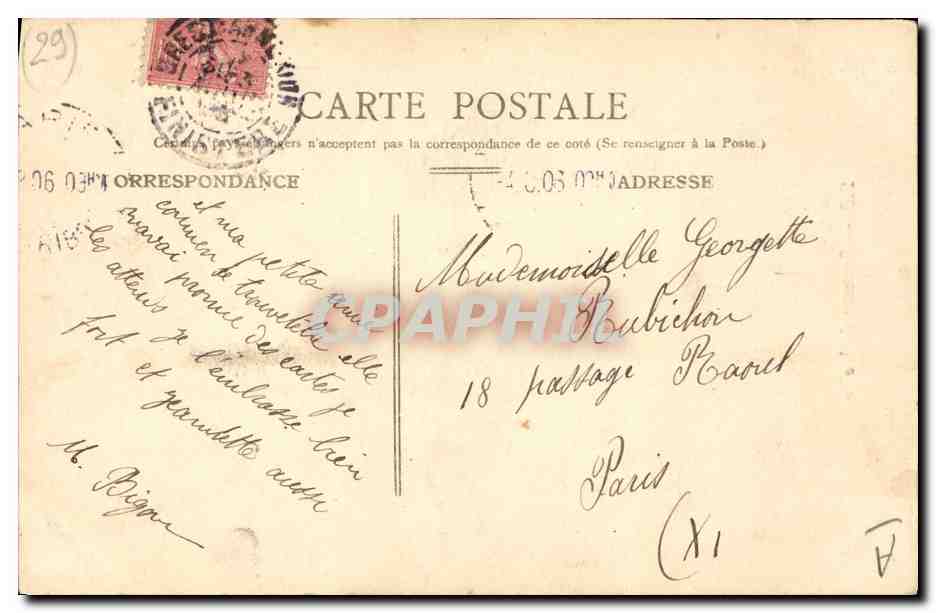 (29)
FINISTERE
CARTE POSTALE
Certains pays étrangers n'acceptent pas la correspondance de ce coté (Se renseigner à la Poste.)
CORRESPONDANCE
ADRESSE
et ma petite amie
commen te trouvetelà elle
mavai promie des cartes je
les attens je l'embrasse bien
fort et jeannette aussi
M. Bigou
Mademoiselle Georgette
Rubichon
18 passage Raoul
Paris
(XI
A
CPAPHIL